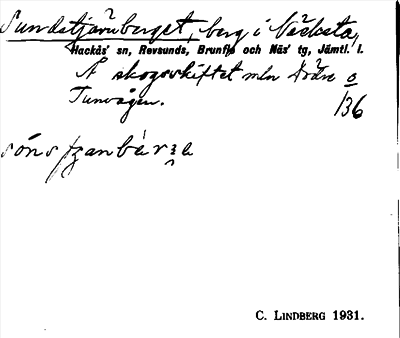 Sundstjärnberget, berg i Näcksta,
Hackås' sn, Revsunds, Brunflo och Näs' tg, Jämtl. l.
Å skogsskiftet mln Ivan o
Tunvågen. 136
C. LINDBERG 1931.